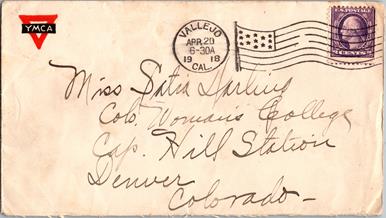 YMCA
VALLEJO
APR 20
6-30A
1918
CAL.
Miss Petra Darling
Colo. Woman's College
Cap. Hill Station
Denver
Colorado-